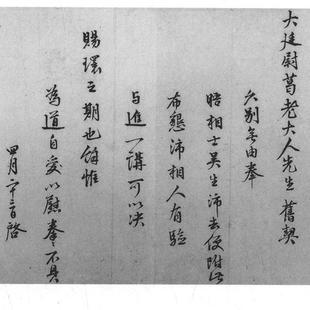 大廷尉葛老大人先生 舊契
久別無由奉
晤相士吳生沛去便附此
布懇沛相人有驗
与進一講可以决
賜環之期也餘惟
為道自愛以慰拳々不具
四月六日啓